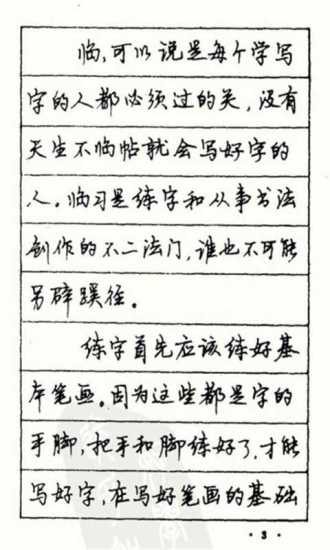 临,可以说是每个学写
字的人都必须过的关,没有
天生不临帖就会写好字的
人。临习是练字和从事书法
创作的不二法门,谁也不可能
另辟蹊径。
练字首先应该练好基
本笔画。因为这些都是字的
手脚,把手和脚练好了,才能
写好字,在写好笔画的基础
·3·